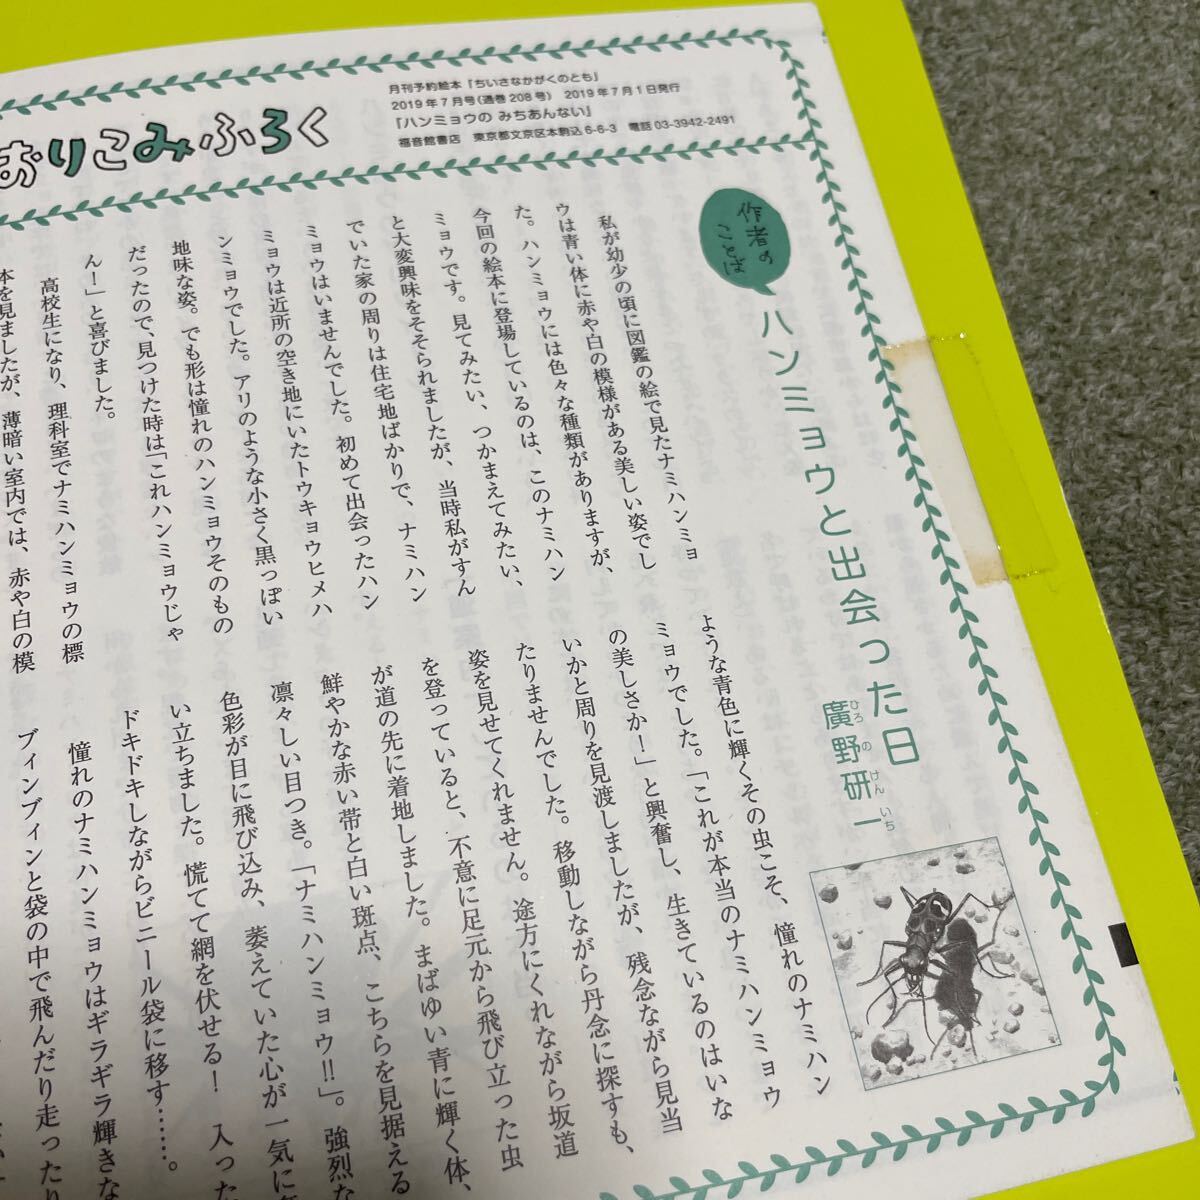 おりこみふろく
月刊予約絵本「ちいさなかがくのとも」
2019年7月号(通巻208号) 2019年7月1日発行
「ハンミョウの みちあんない」
福音館書店 東京都文京区本駒込6-6-3 電話03-3942-2491
作者の
ことば
ハンミョウと出会った日
廣野研一
ひろ の けん いち
私が幼少の頃に図鑑の絵で見たナミハンミョ
ウは青い体に赤や白の模様がある美しい姿でし
た。ハンミョウには色々な種類がありますが、
今回の絵本に登場しているのは、このナミハン
ミョウです。見てみたい、つかまえてみたい、
と大変興味をそそられましたが、当時私がすん
でいた家の周りは住宅地ばかりで、ナミハン
ミョウはいませんでした。初めて出会ったハン
ミョウは近所の空き地にいたトウキョウヒメハ
ンミョウでした。アリのような小さく黒っぽい
地味な姿。でも形は憧れのハンミョウそのもの
だったので、見つけた時は「これハンミョウじゃ
ん!」と喜びました。
高校生になり、理科室でナミハンミョウの標
本を見ましたが、薄暗い室内では、赤や白の模
ような青色に輝くその虫こそ、憧れのナミハン
ミョウでした。「これが本当のナミハンミョウ
の美しさか!」と興奮し、生きているのはいな
いかと周りを見渡しましたが、残念ながら見当
たりませんでした。移動しながら丹念に探すも、
姿を見せてくれません。途方にくれながら坂道
を登っていると、不意に足元から飛び立った虫
が道の先に着地しました。まばゆい青に輝く体、
鮮やかな赤い帯と白い斑点、こちらを見据える
凛々しい目つき。「ナミハンミョウ!!」。強烈な
色彩が目に飛び込み、萎えていた心が一気に
い立ちました。慌てて網を伏せる! 入った
ドキドキしながらビニール袋に移す……。
憧れのナミハンミョウはギラギラ輝きな
ブィンブィンと袋の中で飛んだり走った